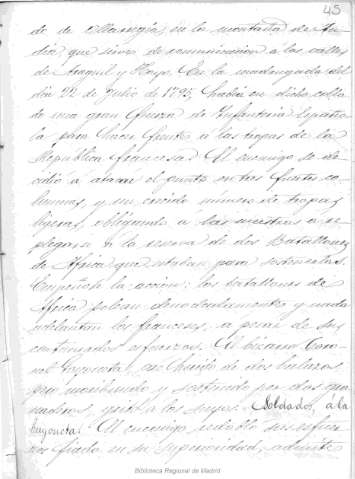 45
de de Ollarregui, en la montaña de An-
dia, que sirve de comunicacion a los valles
de Araquil y Hoya. En la madrugada del
dia 22 de Julio de 1795, habia en dicho valle
de una gran fuerza de Infantería Españo-
la para hacer frente a las tropas de la
República francesa. El enemigo se de-
cidió a atacar el punto en tres fuertes co-
lumnas, y un crecido número de tropas
ligeras, obligando a las nuestras a re-
plegarse a la reserva de dos Batallones
de Africa que estaban para sostenerlas.
Empeñose la accion: los batallones de
Africa pelean denodadamente y nada
adelantan los franceses, a pesar de sus
continuados esfuerzos. El bizarro Coro-
nel es herido de dos balazos,
pero moribundo y sostenido por dos gra-
naderos, grita a los suyos: Soldados, á la
bayoneta. El enemigo redobla sus esfuer-
zos fiado en su superioridad,
Biblioteca Regional de Madrid